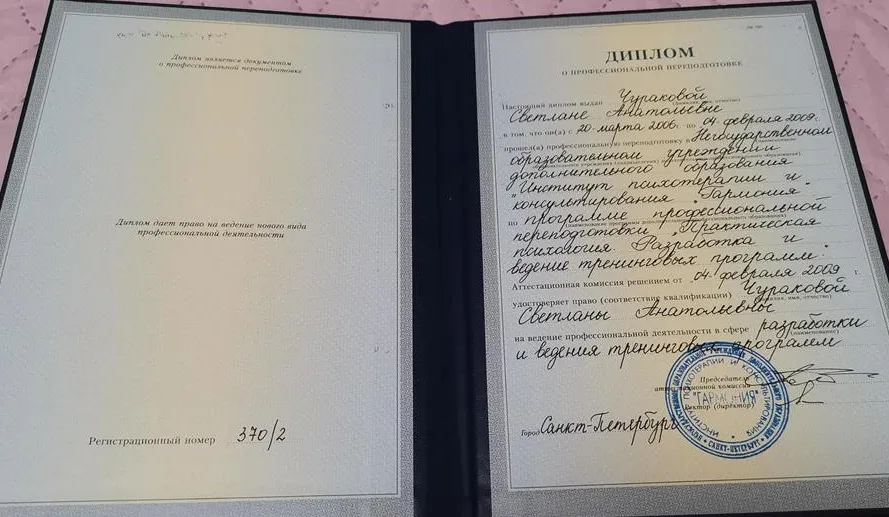 Диплом является документом
о профессиональной переподготовке
Диплом дает право на ведение нового вида
профессиональной деятельности
Регистрационный номер 370/2
ДИПЛОМ
О ПРОФЕССИОНАЛЬНОЙ ПЕРЕПОДГОТОВКЕ
Настоящий диплом выдан Чураковой
(фамилия, имя, отчество)
Светлане Анатольевне
в том, что он(а) с 20 марта 2006г. по 04 февраля 2009г.
прошел(а) профессиональную переподготовку в Негосударственном
образовательном учреждении
дополнительного образования
"Институт психотерапии и
консультирования "Гармония"
по программе профессиональной
переподготовки "Практическая
психология. Разработка и
ведение тренинговых программ".
Аттестационная комиссия решением от 04 февраля 2009 г.
удостоверяет право (соответствие квалификации) Чураковой
(фамилия, имя, отчество)
Светланы Анатольевны
на ведение профессиональной деятельности в сфере разработки
(наименование)
и ведения тренинговых программ
Председатель
аттестационной комиссии
Ректор (директор)
Город Санкт-Петербург
ИНСТИТУТ ПСИХОТЕРАПИИ И КОНСУЛЬТИРОВАНИЯ
"ГАРМОНИЯ"
САНКТ-ПЕТЕРБУРГ